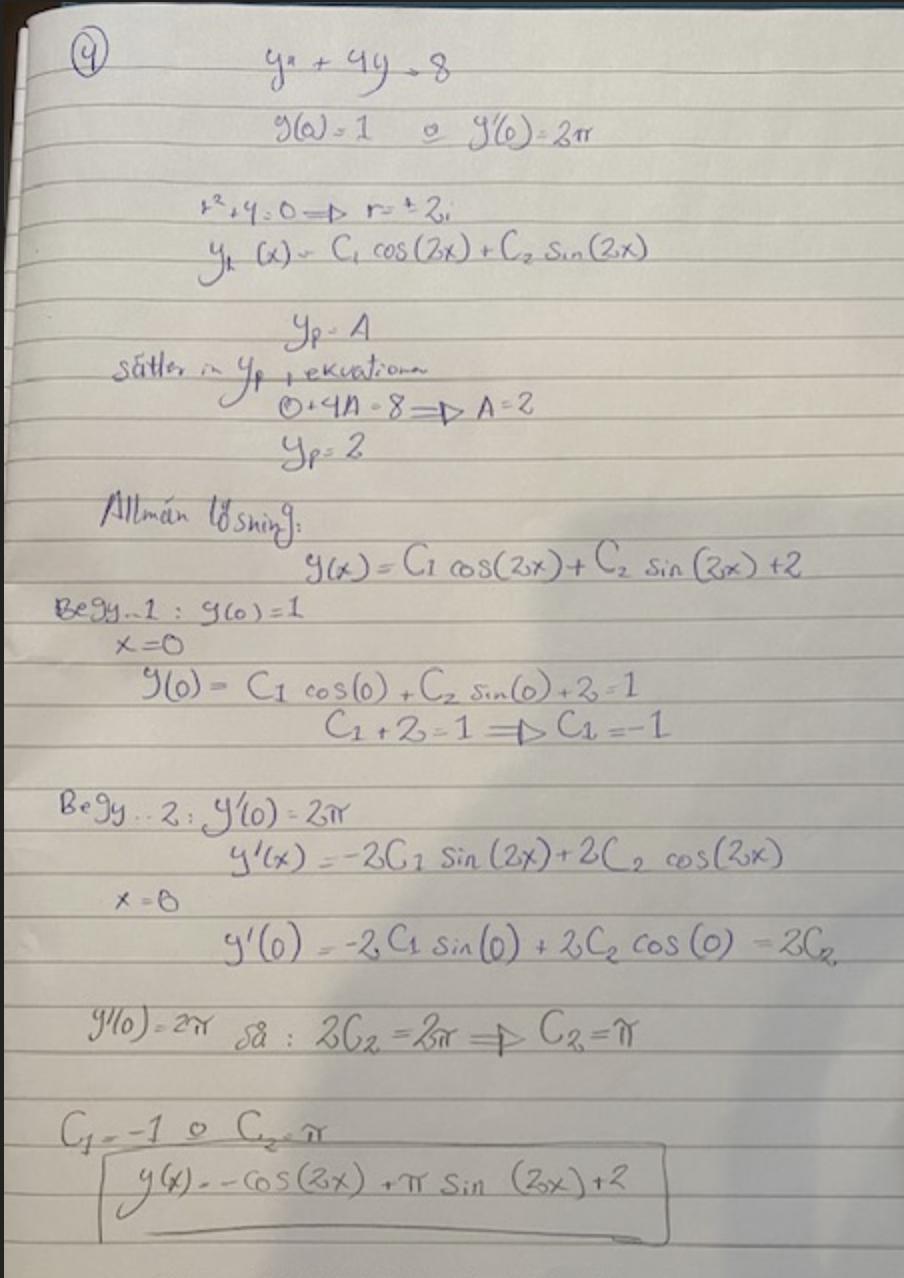 4
y'' + 4y = 8
y(0) = 1 o y'(0) = 2π
r² + 4 = 0 => r = ± 2i
y_h (x) = C₁ cos(2x) + C₂ sin(2x)
y_p = A
sätter in y_p i ekvationen
0 + 4A = 8 => A = 2
y_p = 2
Allmän lösning:
y(x) = C₁ cos(2x) + C₂ sin(2x) + 2
Begy..1 : y(0) = 1
x = 0
y(0) = C₁ cos(0) + C₂ sin(0) + 2 = 1
C₁ + 2 = 1 => C₁ = -1
Begy..2 : y'(0) = 2π
y'(x) = -2C₁ sin(2x) + 2C₂ cos(2x)
x = 0
y'(0) = -2C₁ sin(0) + 2C₂ cos(0) = 2C₂
y'(0) = 2π så : 2C₂ = 2π => C₂ = π
C₁ = -1 o C₂ = π
y(x) = -cos(2x) + π sin (2x) + 2